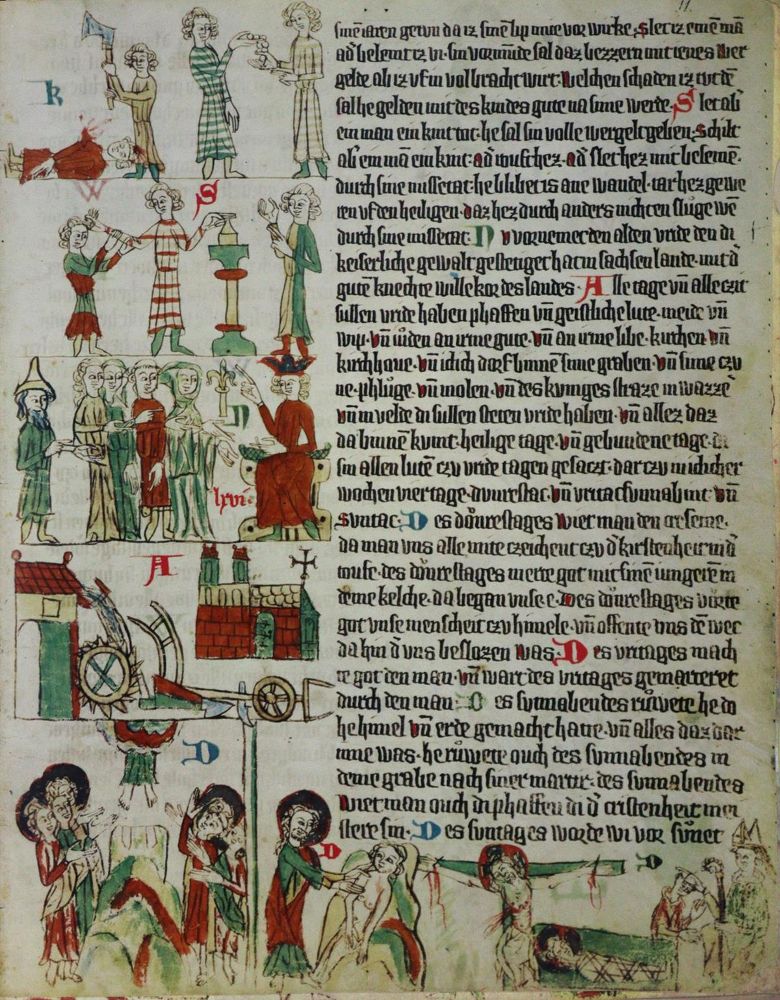 11
sinen iaren getvn da iz sinē lip mite vor wirke, Slet iz einē mā
ad̾ belemt iz vi. sin vormūde sal daz bezzern mit ienes wer
gelde. ab iz vf in volbracht wirt. welchen schaden iz tvt dē
sal he gelden mit des kindes gute na sime werde. Slet ab
ein man ein kint tot. he sal sin volle wergelt geben. Schilt
ab ein mā ein kint. ad̾ ad̾ slet hez mit besemē.
durch sine missetat. he blibet is ane wandel. tar hez gewe
ren vf den heiligen. daz hez durch anders nicht en sluge wē
durch sine missetat. Nv vornemet den alden vride den di
keiserliche gewalt gestetiget hat in sachsen lande. mit d̾
gutē knechte willekor des landes. Alle tage vn̄ alle czit
sullen vride haben phaffen vn̄ geistliche lute. meide vn̄
wip. vn̄ iuden an irme gute. vn̄ an irme libe. kirchen vn̄
kirchhove. vn̄ iclich dorf binnen sime graben. vn̄ sime czu
ne. phluge. vn̄ molen. vn̄ des kvinges straze in wazzē
vn̄ in velde di sullen steten vride haben. vn̄ allez daz
da binnē kvmt. heilige tage. vn̄ gebundene tage. di
sin allen lutē czv vride tagen gesaczt. dar czv in iclicher
wochen vier tage. dvnrestac. vn̄ vritac svnabint. vn̄
svntac. Des dōnrestages wiet man den creseme.
da man vns alle mite czeichent czv d̾ kirstenheit in d̾
toufe. des dōnrestages merte got mit sinē iungerē in
deme kelche. da began vnse e. Des dōnrestages vurte
got vnse menscheit czv himele. vn̄ offente vns dē wec
da hin d̾ vns beslozen was. Des vritages mach
te got den man. vn̄ wart des vritages gemarteret
durch den man. Des svnabendes rŭwete he do
he himel vn̄ erde gemacht hatte. vn̄ alles daz dar
inne was. he rŭwete ouch des svnnabendes in
deme grabe nach siner martir. des svnnabendes
wiet man ouch di phaffen di d̾ cristenheit mei
stere sin. Des svntages worde wi vor sŭnet
k
W
S
N
lxvi
A
D
D
D